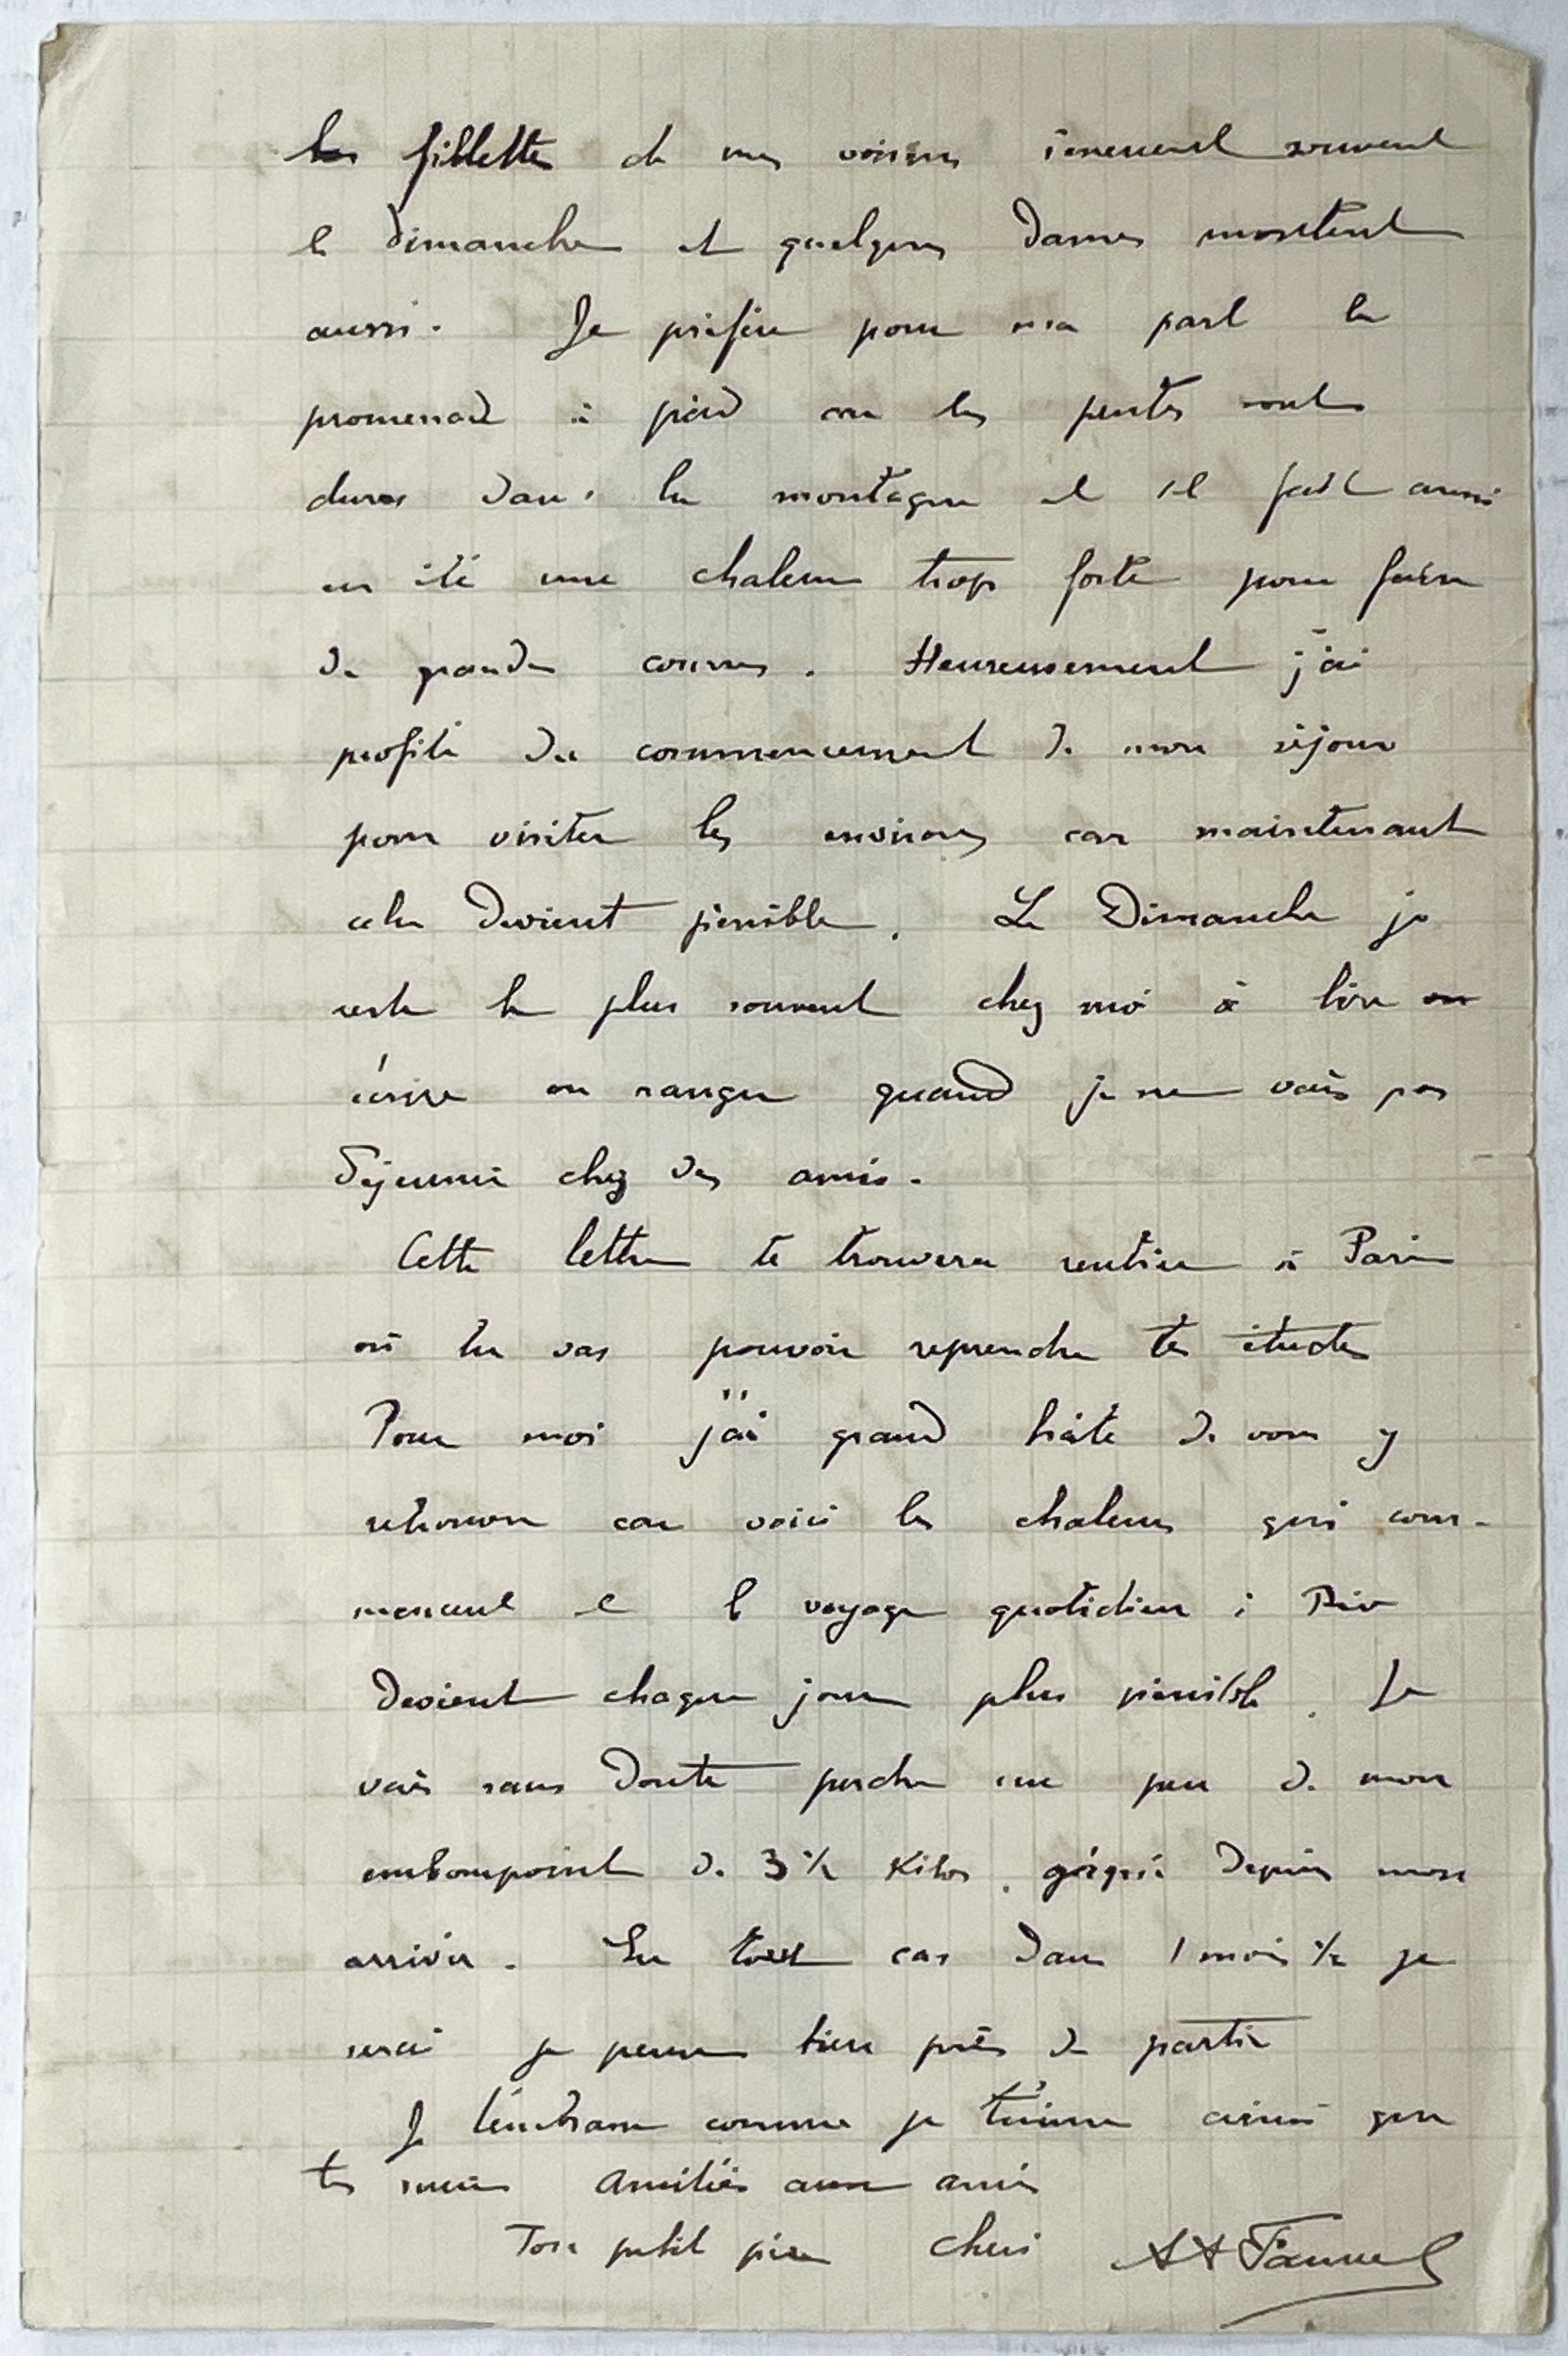 les fillettes de mes voisins viennent souvent
le dimanche et quelques dames montent
aussi. Je préfère pour ma part la
promenade à pied car les pentes sont
dures dans la montagne et il fait aussi
en été une chaleur trop forte pour faire
de grandes courses. Heureusement j'ai
profité du commencement de mon séjour
pour visiter les environs car maintenant
cela devient pénible. Le Dimanche je
reste le plus souvent chez moi à lire ou
écrire ou ranger quand je ne vais pas
déjeuner chez des amis.
Cette lettre te trouvera rentrée à Paris
où tu vas pouvoir reprendre tes études
Pour moi j'ai grand hâte de vous y
retrouver car voici les chaleurs qui com-
mencent et le voyage quotidien à
devient chaque jour plus pénible. Je
vais sans doute perdre un peu de mon
embonpoint de 3 1/2 Kilos. gagné depuis mon
arrivée. En tout cas dans 1 mois 1/2 je
serai je pense bien près de partir
Je t'embrasse comme je t'aime ainsi que
tes sœurs Amitiés aux amis
Ton petit père chéri